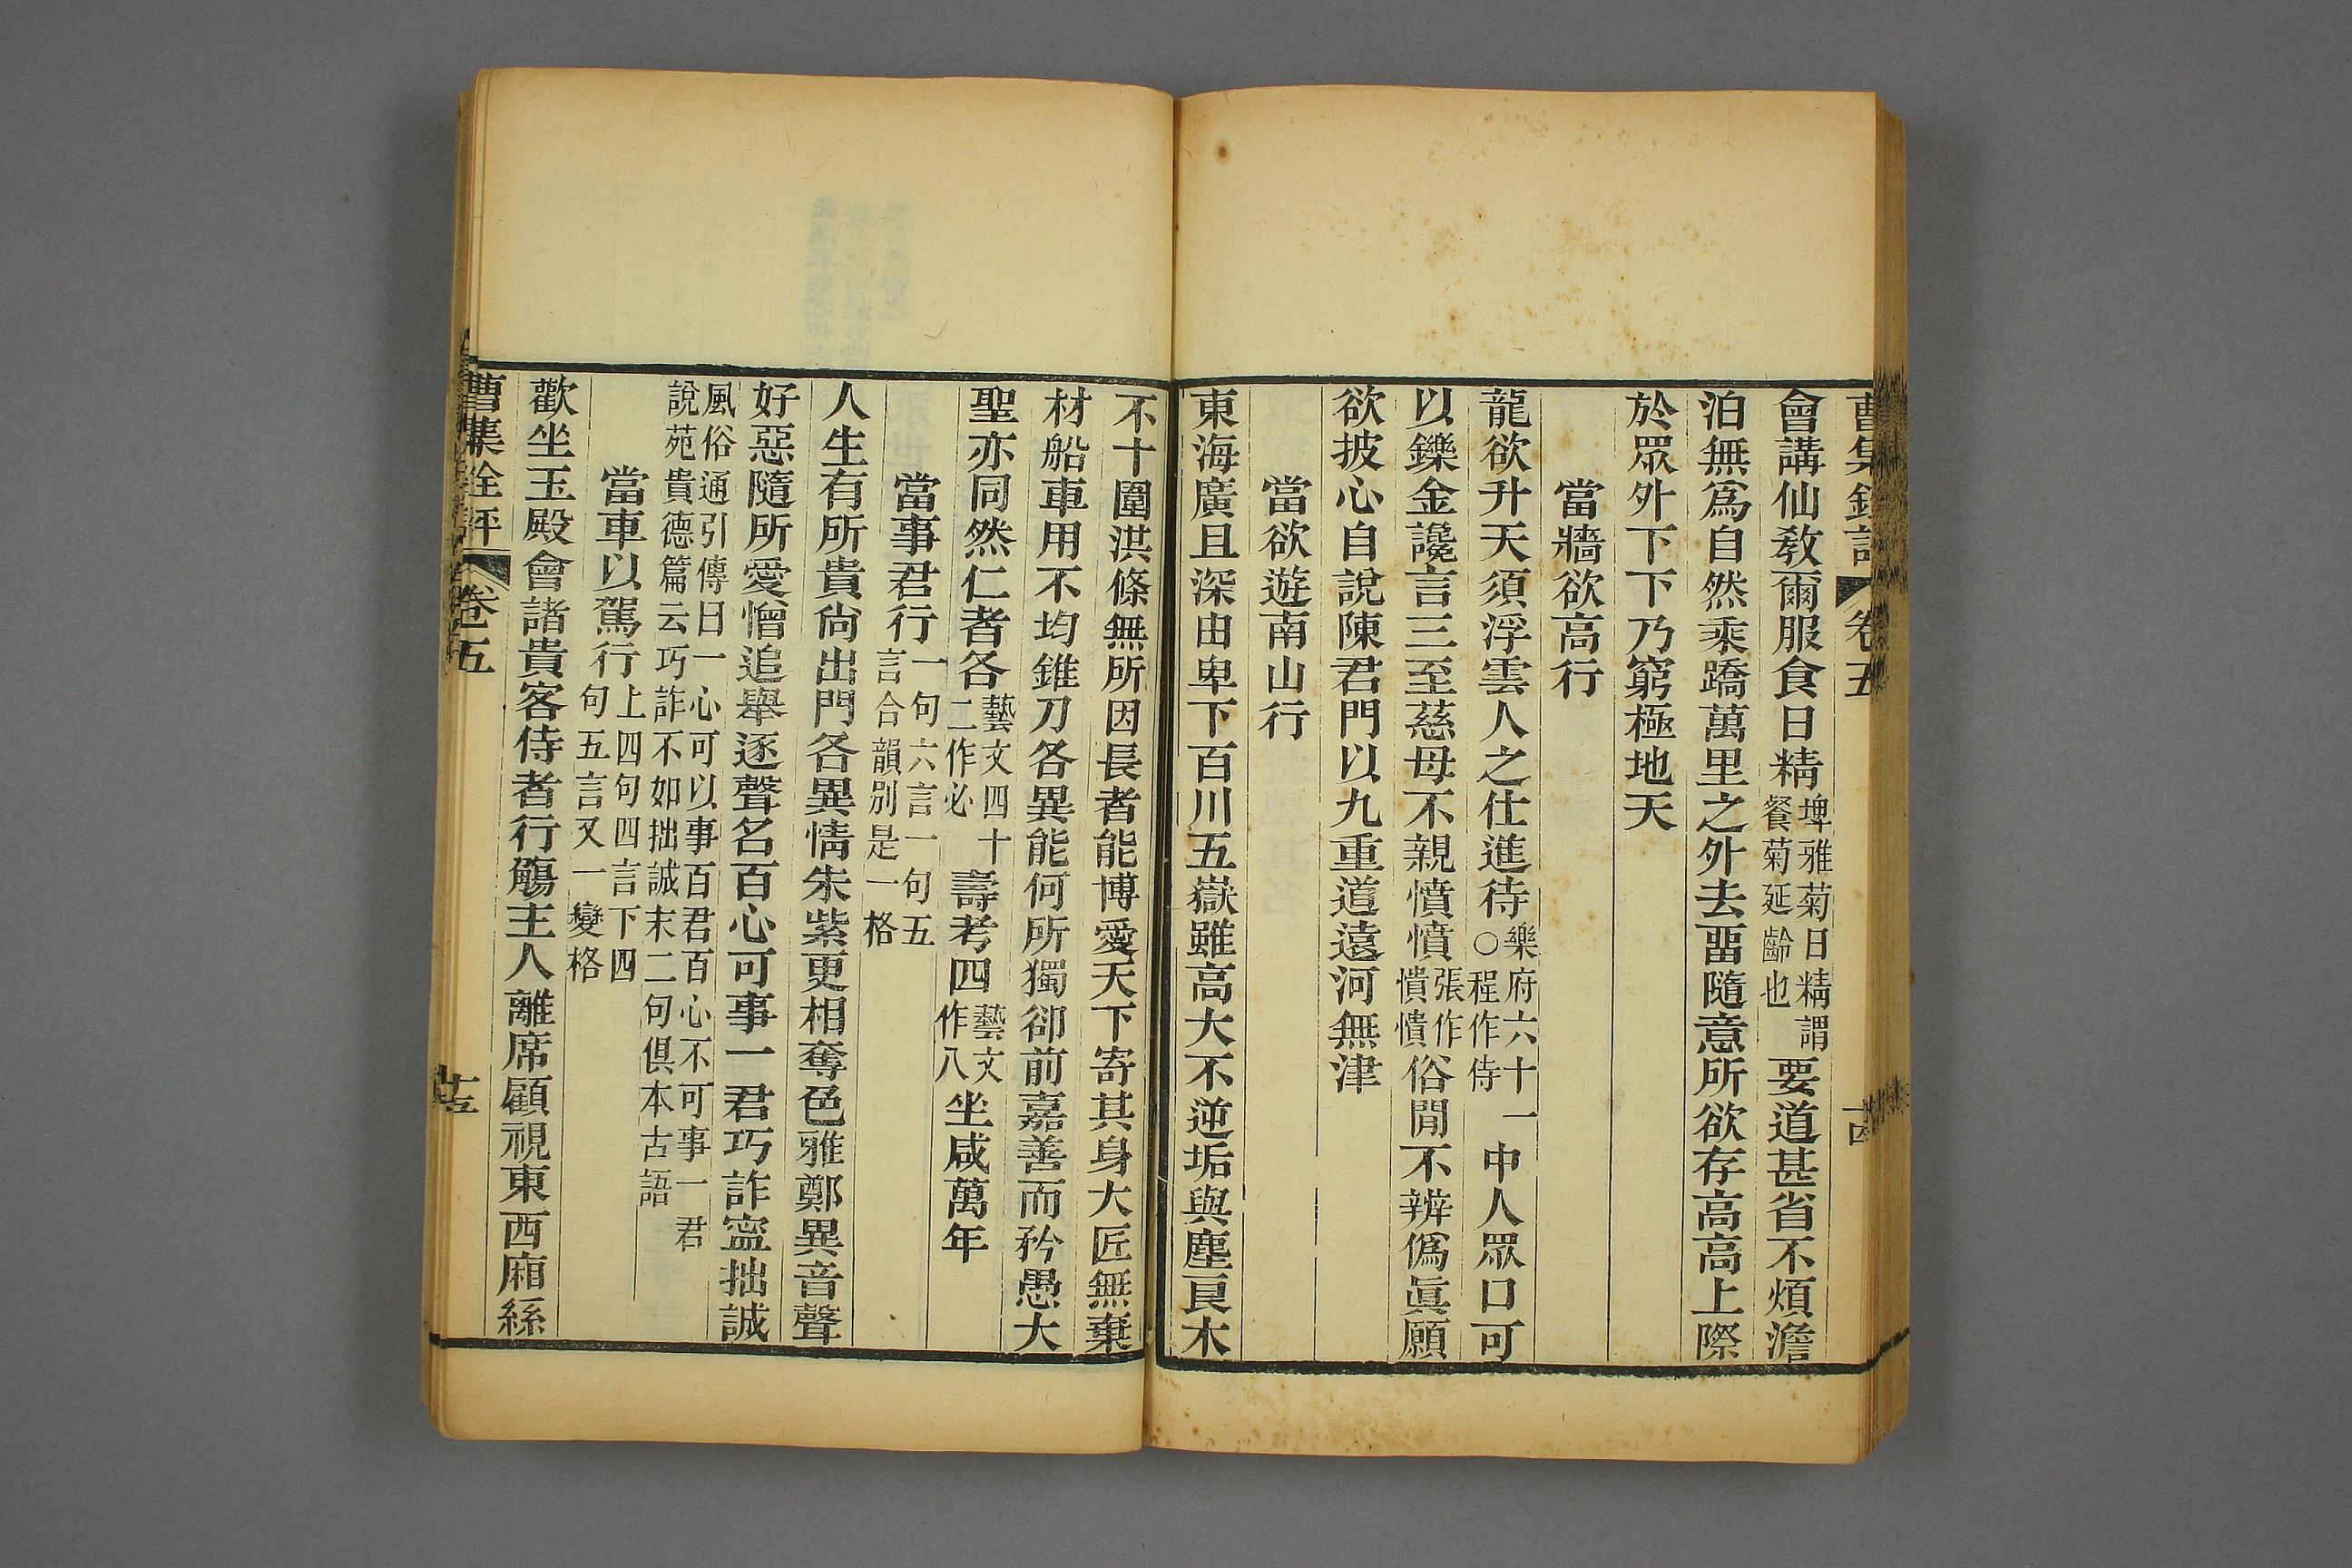 曹集銓評 卷五 十四
會講仙教爾服食日精埤雅菊曰精謂餐菊延齡也要道甚省不煩澹
泊無爲自然乘蹻萬里之外去畱隨意所欲存高高上際
於眾外下下乃窮極地天
當牆欲高行
龍欲升天須浮雲人之仕進待樂府六十一○程作侍中人眾口可
以鑠金讒言三至慈母不親憤憤張作憒憒俗閒不辨僞眞願
欲披心自說陳君門以九重道遠河無津
當欲遊南山行
東海廣且深由卑下百川五嶽雖高大不逆垢與塵良木
不十圍洪條無所因長者能博愛天下寄其身大匠無棄
材船車用不均錐刀各異能何所獨卻前嘉善而矜愚大
聖亦同然仁者各藝文四十二作必壽考四藝文作八坐咸萬年
當事君行一句六言一句五言合韻別是一格
人生有所貴尙出門各異情朱紫更相奪色雅鄭異音聲
好惡隨所愛憎追舉逐聲名百心可事一君巧詐寍拙誠
風俗通引傳曰一心可以事百君百心不可事一君
說苑貴德篇云巧詐不如拙誠末二句俱本古語
當車以駕行上四句四言下四句五言又一變格
歡坐玉殿會諸貴客侍者行觴主人離席顧視東西廂絲
曹集銓評 卷五 十五